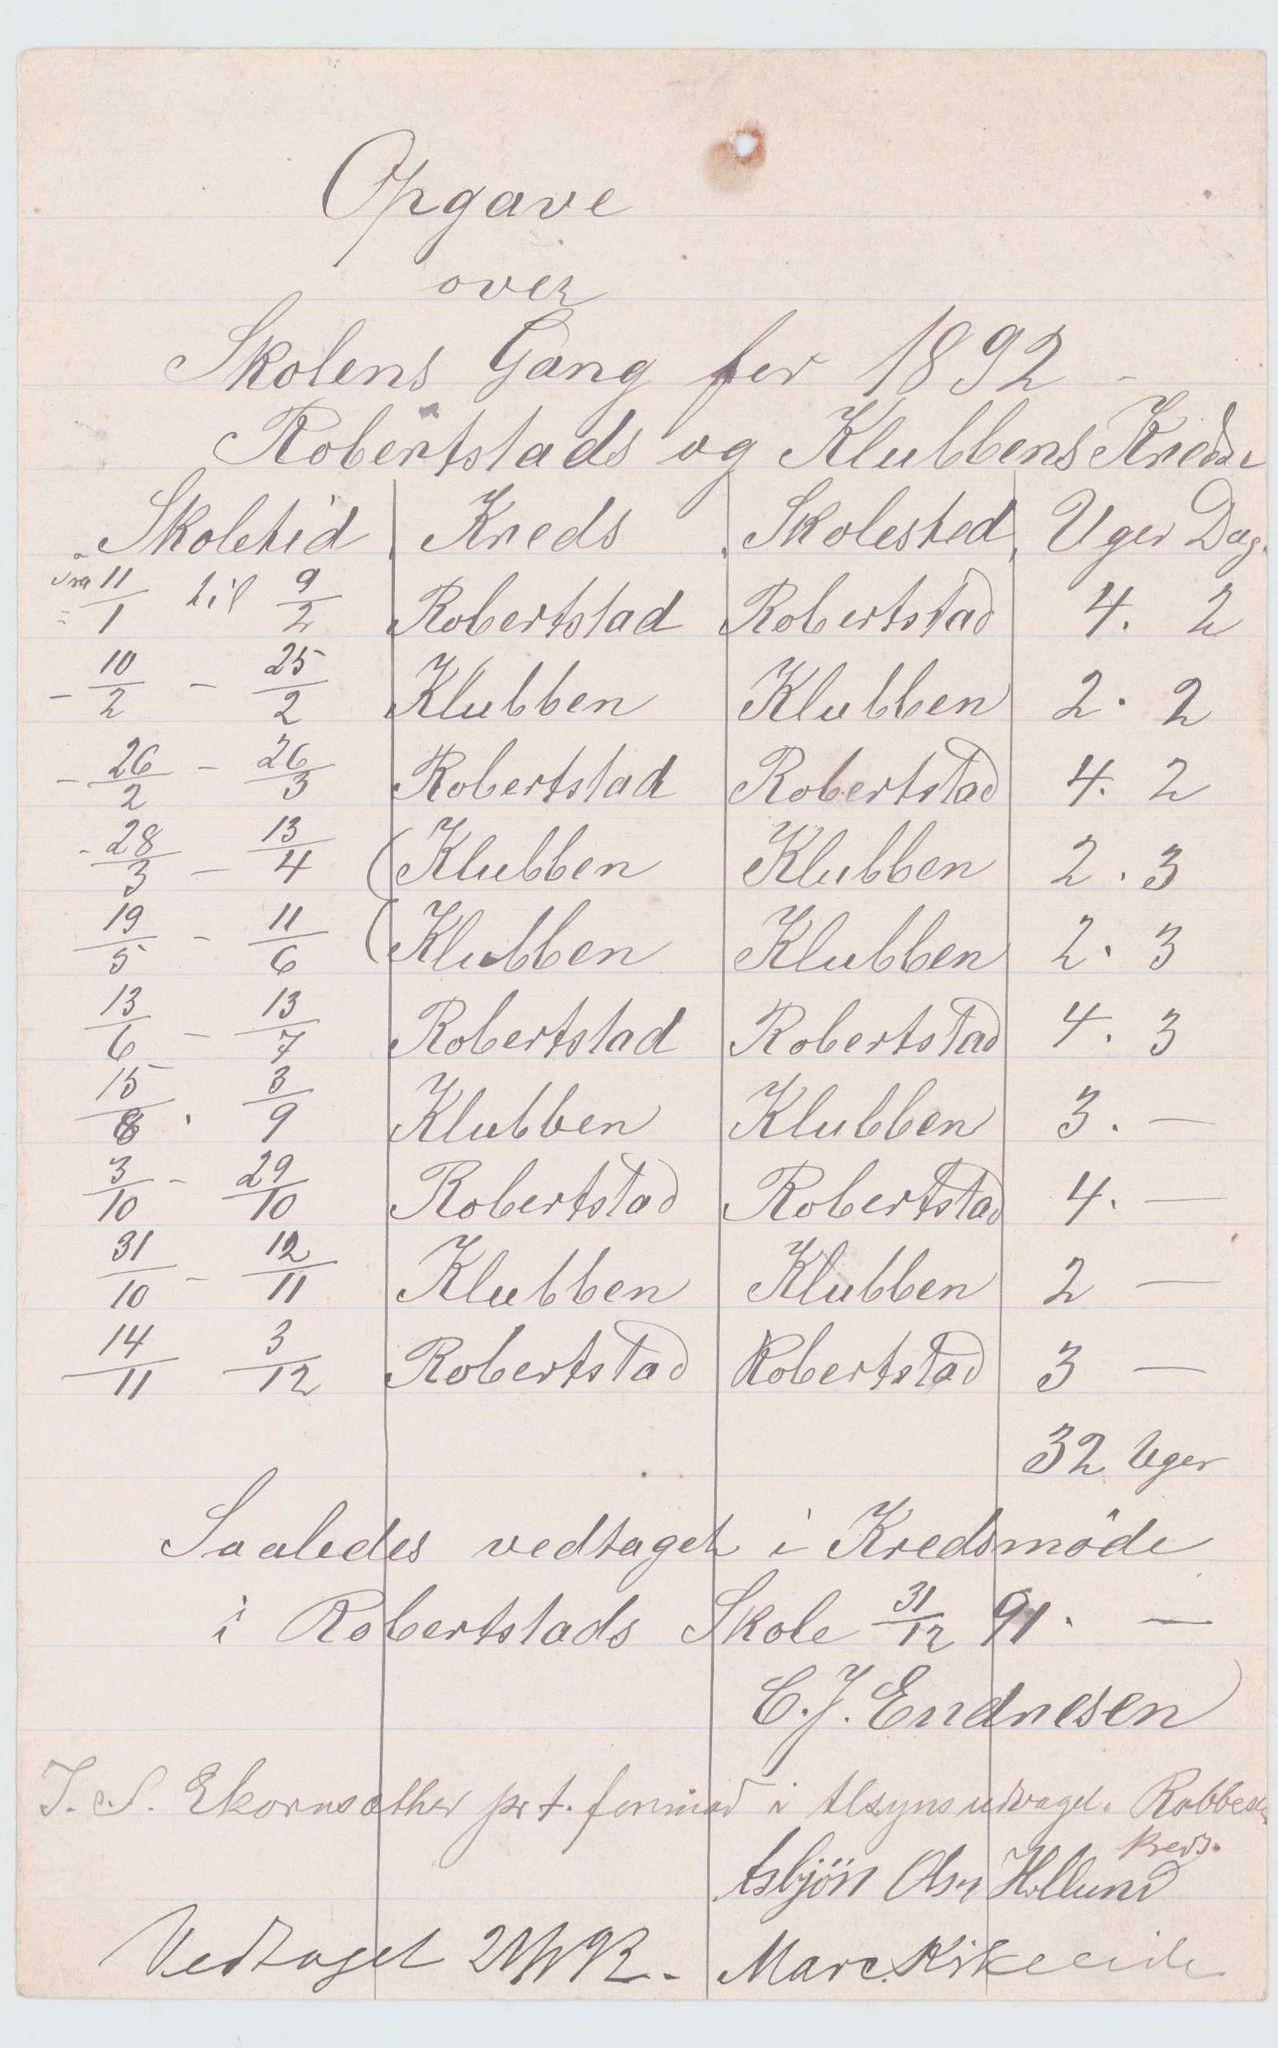 Opgave
over
Skolens Gang for 1892 -
Robertstads og Klubbens Kredse
Skoletid Kreds Skolested Uger Dag.
Fra 11/1 til 9/2 Robertstad Robertstad 4. 2
- 10/2 - 25/2 Klubben Klubben 2. 2
- 26/2 - 26/3 Robertstad Robertstad 4. 2
- 28/3 - 13/4 (Klubben Klubben 2. 3
19/5 - 11/6 (Klubben Klubben 2. 3
13/6 - 13/7 Robertstad Robertstad 4. 3
15/8 . 3/9 Klubben Klubben 3. —
3/10 - 29/10 Robertstad Robertstad 4. —
31/10 - 12/11 Klubben Klubben 2 —
14/11 3/12 Robertstad Robertstad 3 —
32 Uger
Saaledes vedtaget i Kredsmöde
i Robertstads Skole 31/12 91. —
C. J. Endresen
J. S. Ekornsæther pr t. formad i tilsynsudvaget.
Kreds.
Asbjön Olsn Hollund
Vedtaget